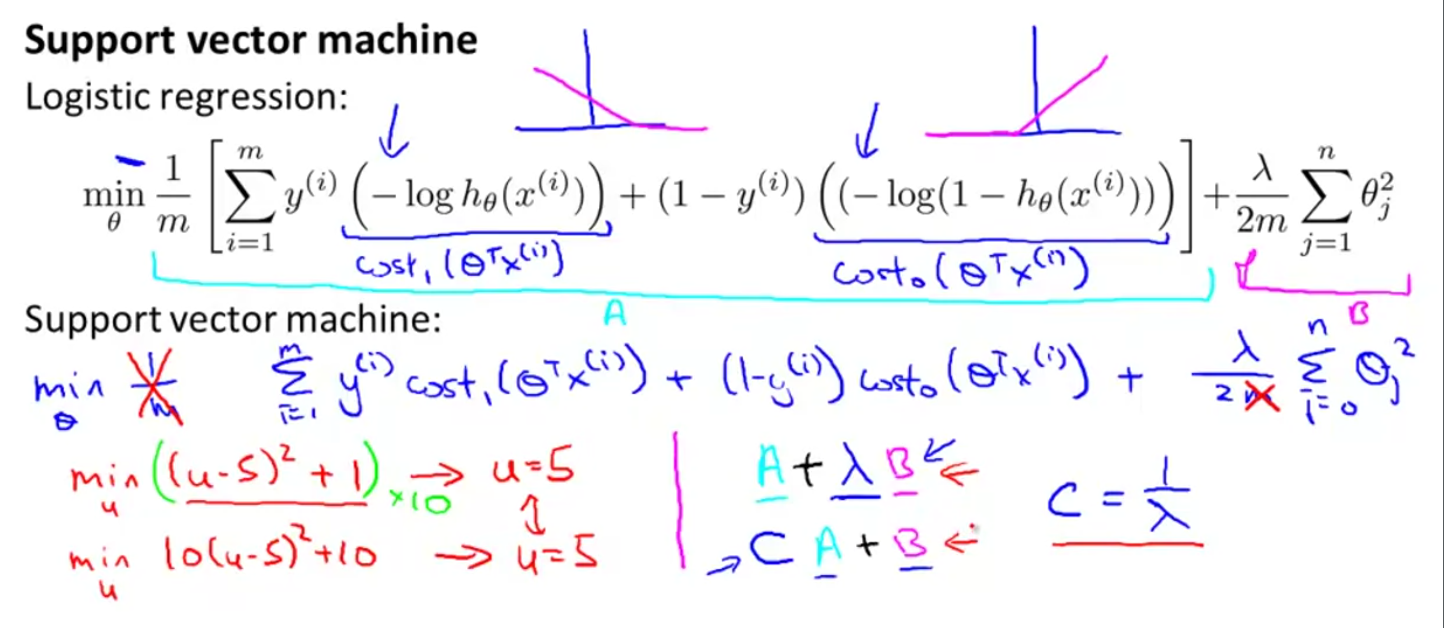 Support vector machine
Logistic regression:
min_θ 1/m [ Σ_{i=1}^{m} y^{(i)} ( − log h_θ(x^{(i)}) ) + (1 − y^{(i)}) ( (− log(1 − h_θ(x^{(i)}))) ) ] + λ/2m Σ_{j=1}^{n} θ_j^2
cost_1(θ^T x^{(i)}) cost_0(θ^T x^{(i)})
A B
Support vector machine:
min_θ 1/m Σ_{i=1}^{m} y^{(i)} cost_1(θ^T x^{(i)}) + (1-y^{(i)}) cost_0(θ^T x^{(i)}) + λ/2m Σ_{i=0}^{n} θ_j^2
min_u ((u-5)^2 + 1) ×10 → u=5
min_u 10(u-5)^2+10 → u=5
A + λ B ←
→ C A + B ←
C = 1/λ